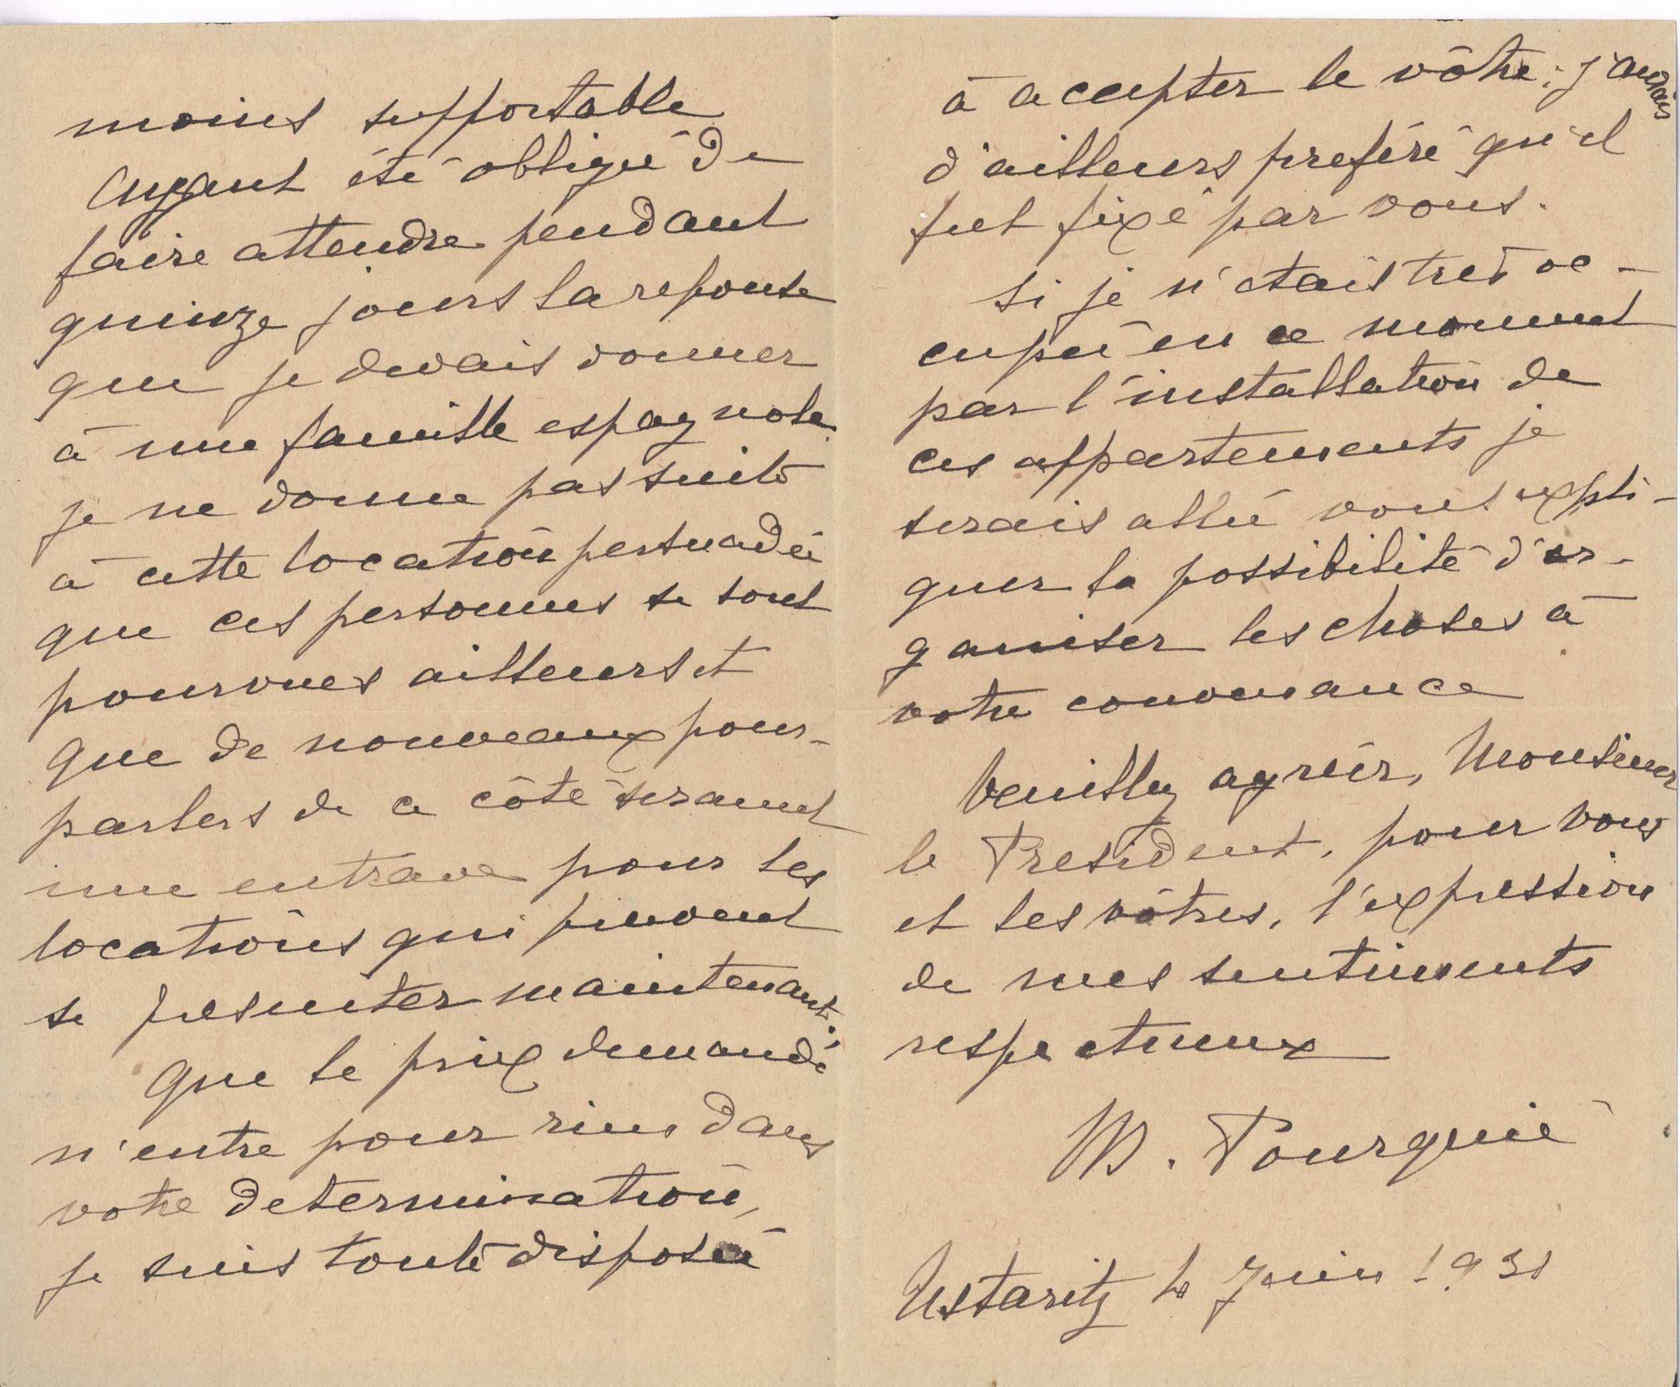 moins supportable
Ayant été obligé de
faire attendre pendant
quinze jours la reponse
que je devais donner
à une famille espagnole
je ne donne pas suite
à cette location persuadée
que ces personnes se sont
pourvues ailleurs et
que de nouveaux pour-
parlers de ce côté seraient
une entrave pour les
locations qui peuvent
se presenter maintenant.
Que le prix demandé
n'entre pour rien dans
votre determination,
je suis toute disposée
à accepter le vôtre; j'aurais
d'ailleurs preféré qu'il
fut fixé par vous.
si je n'etais tres oc-
cupée en ce moment
par l'installation de
ces appartements je
serais allée vous expli-
quer la possibilité d'or-
ganiser les choses à
votre convenance
Veuillez agréer, Monsieur
le President, pour vous
et les vôtres, l'expression
de mes sentiments
respectueux
M. Pourquié
Ustaritz le Juin 1931